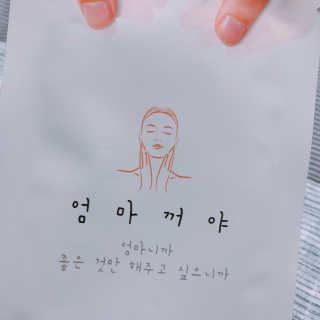 엄마꺼야
엄마니까
좋은 것만 해주고 싶으니까